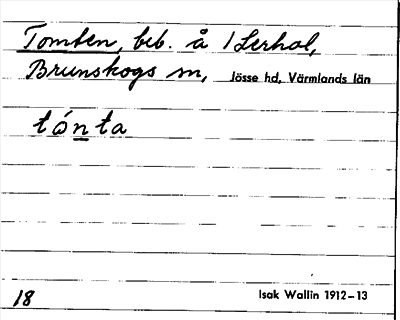 Tomten, beb. å 1 Lerhol,
Brunskogs sn, Jösse hd, Värmlands län
tónta
18 Isak Wallin 1912–13